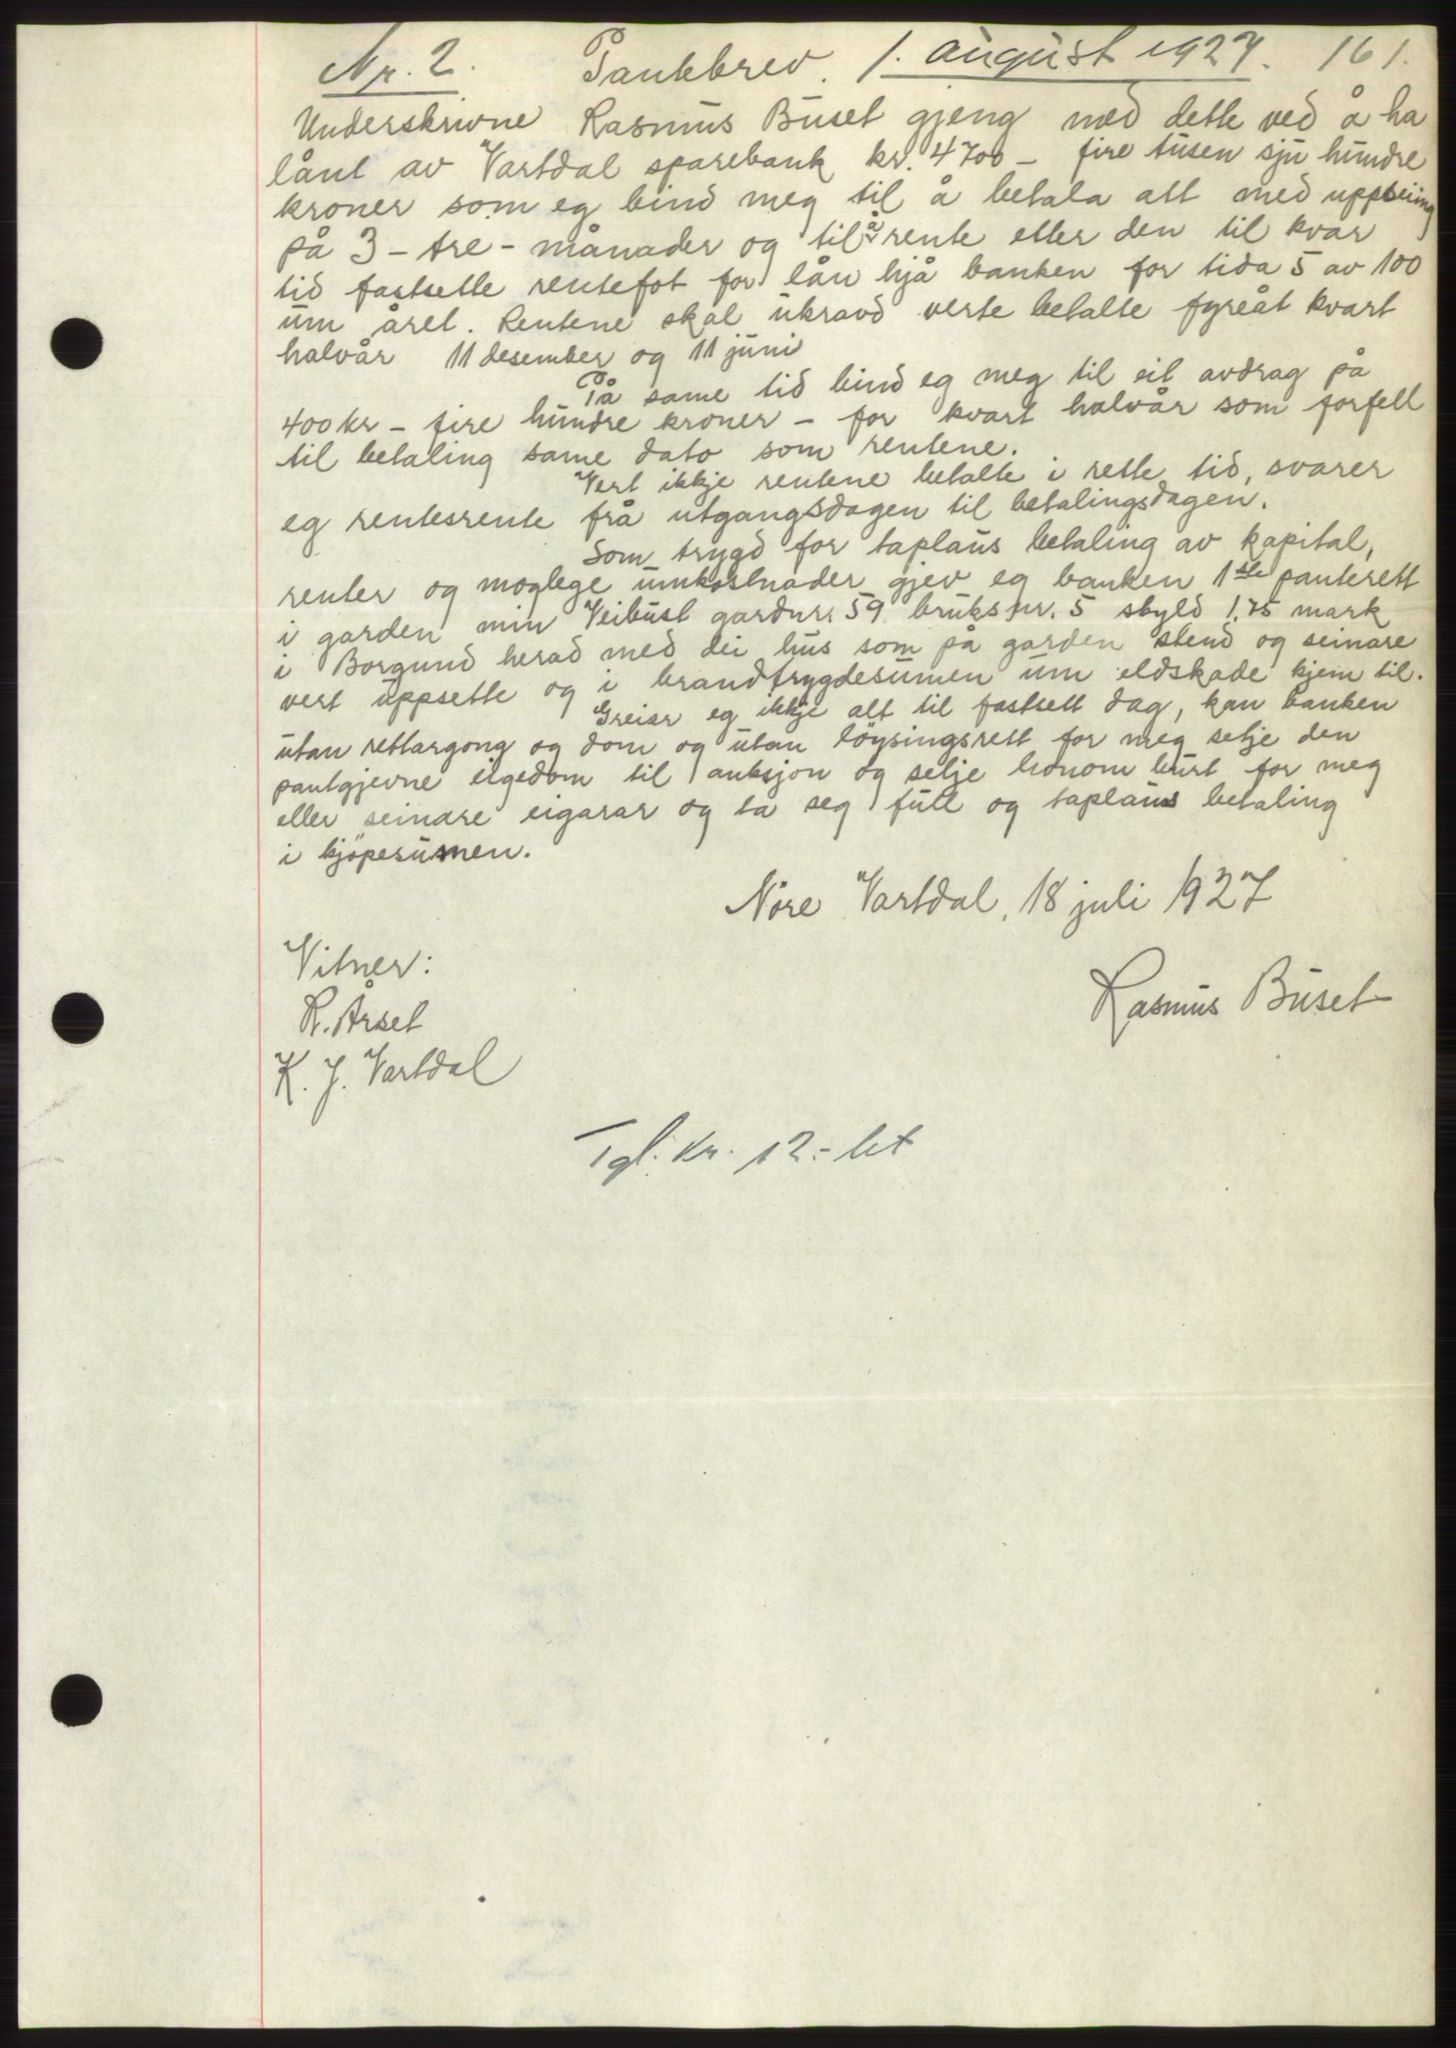 Nr. 2. Pantebrev. 1. august 1927. 161.
Underskrivne Rasmus Buset gjeng med dette ved å ha
lånt av Vartdal sparebank kr. 4700 - fire tusen sju hundre
kroner som eg bind meg til å betala att med uppseiing
på 3 - tre - månader og til å rente etter den til kvar
tid fastsette rentefot for lån hjå banken for tida 5 av 100
um året. Rentene skal ukravd verte betalte fyreåt kvart
halvår 11 desember og 11 juni
På same tid bind eg meg til eit avdrag på
400 kr - fire hundre kroner - for kvart halvår som forfell
til betaling same dato som rentene.
Vert ikkje rentene betalte i rette tid, svarer
eg rentesrente frå utgangsdagen til betalingsdagen.
Som trygd for taplaus betaling av kapital,
renter og moglege umkostnader gjev eg banken 1ste panterett
i garden min Veibust gardnr. 59 bruksnr. 5 skyld 1.75 mark
i Borgund herad med dei hus som på garden stend og seinare
vert uppsette og i brandtrygdesumen um eldskade kjem til.
Greier eg ikkje alt til fastsett dag, kan banken
utan rettargong og dom og utan löysingsrett for meg setje den
pantgjevne eigedom til auksjon og selje honom burt for meg
eller seinare eigarar og ta seg full og taplaus betaling
i kjöpesumen.
Nöre Vartdal, 18 juli 1927
Vitner:
Rasmus Buset
R. Årset
K. J. Vartdal
Tgl. kr. 12 - bet